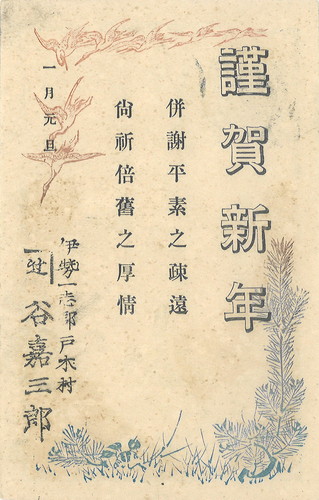 謹賀新年
併謝平素之疎遠
尙祈倍舊之厚情
一月元旦
伊勢一志郡戸木村
辻
谷嘉三郎